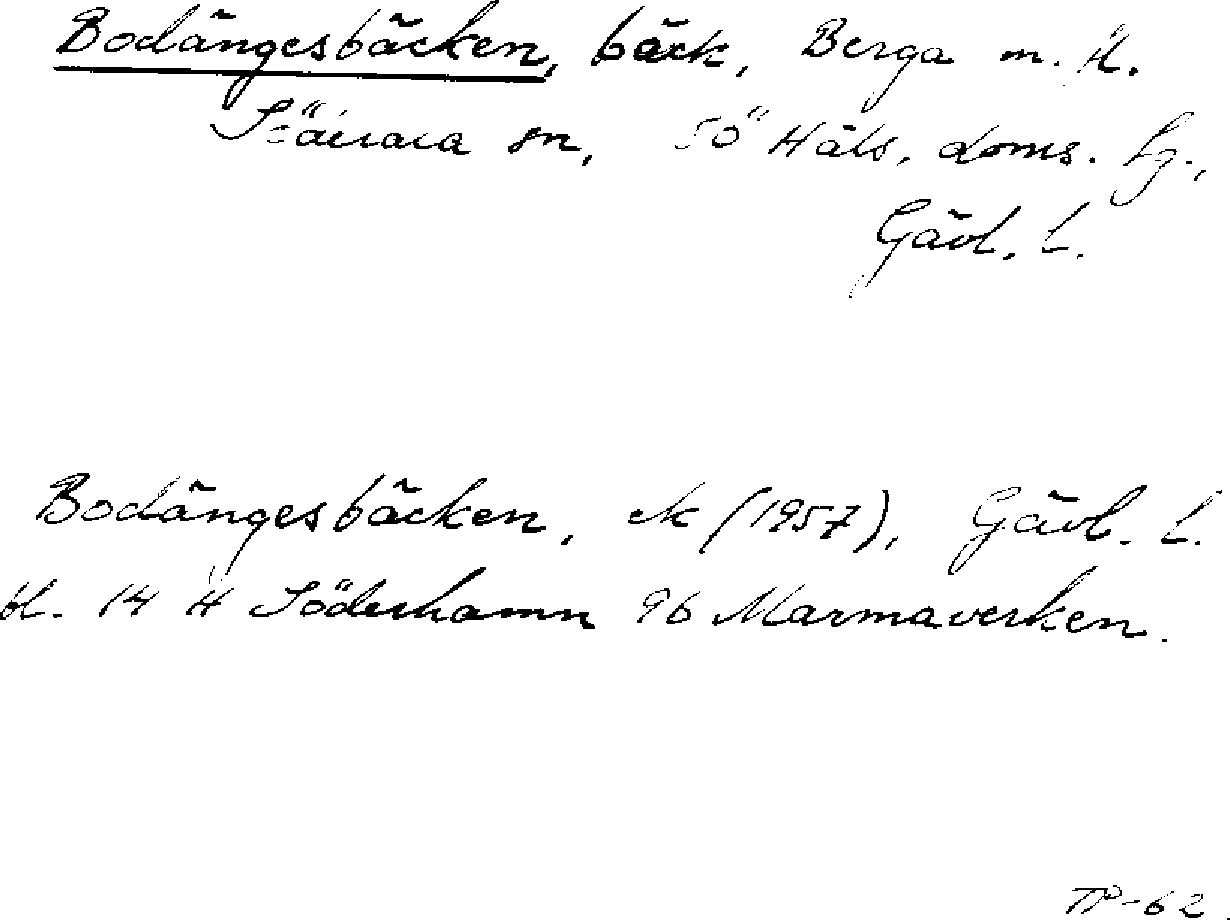 Bodängesbäcken, bäck, Berga m. fl.
Söderala sn, Sö Häls, doms. lg.,
Gävl. l.
Bodängesbäcken, ek (1957), Gävl. l.
bl. 14 H Söderhamn 9b Marmaverken.
TP-62